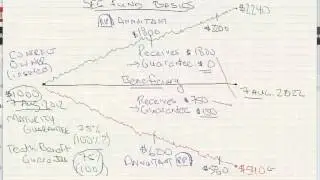 SEG FUND BASICS
$2240
ANNUITANT
$1800
$2200
CONTRACT
OWNER
(INSURED)
Receives $1800
Guarantee $0
Beneficiary
$1000
7 AUG. 2012
7 AUG. 2022
Receives $750
Guarantee $150
MATURITY
GUARANTEE 75%
(100%?)
Death Benefit
Guarantee 75
(100)
$600
ANNUITANT
$560
$540